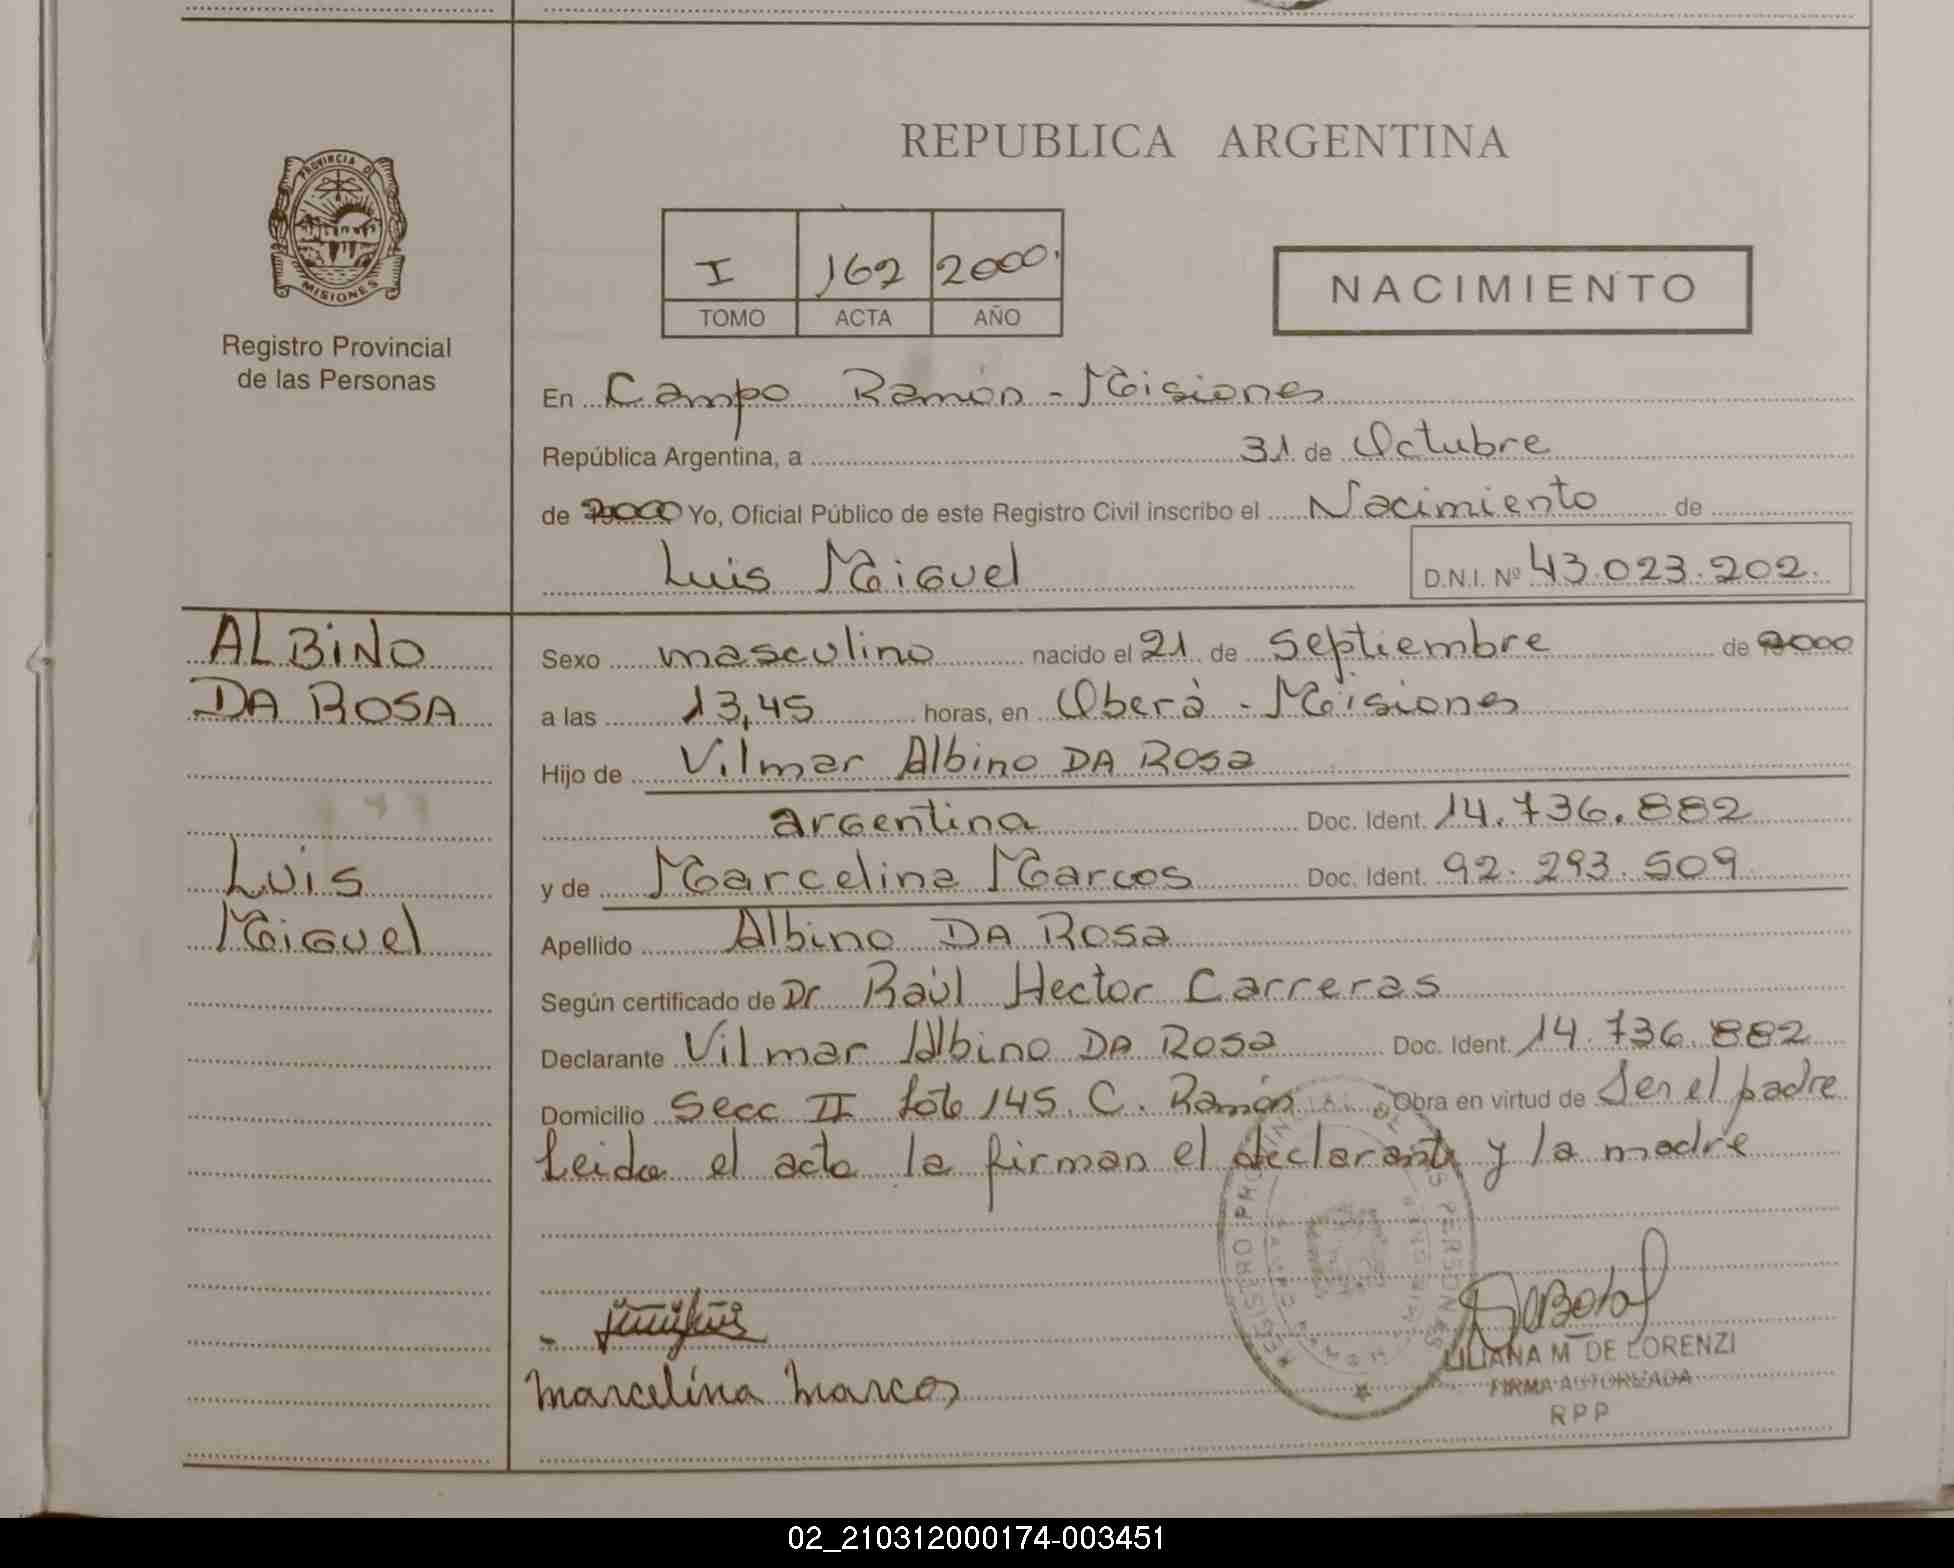 PROVINCIA DE
MISIONES
Registro Provincial
de las Personas
REPUBLICA ARGENTINA
I 162 2000.
TOMO ACTA AÑO
NACIMIENTO
En Campo Ramón - Misiones
República Argentina, a 31 de Octubre
de 2000 Yo, Oficial Público de este Registro Civil inscribo el Nacimiento de
Luis Miguel D.N.I. Nº 43.023.202.
ALBINO
DA ROSA
Luis
Miguel
Sexo masculino nacido el 21 de Septiembre de 2000
a las 13,45 horas, en Oberá - Misiones
Hijo de Vilmar Albino DA ROSA
argentina Doc. Ident. 14.736.882
y de Marcelina Marcos Doc. Ident. 92.293.509
Apellido Albino DA ROSA
Según certificado de Dr Raúl Hector Carreras
Declarante Vilmar Albino DA ROSA Doc. Ident. 14.736.882
Domicilio Secc II Lote 145 C. Ramón Obra en virtud de Ser el padre
Leida el acta la firman el declarante y la madre
REGISTRO PROVINCIAL DE LAS PERSONAS
Marcelina Marcos
LILIANA M DE LORENZI
FIRMA AUTORIZADA
RPP
02_210312000174-003451